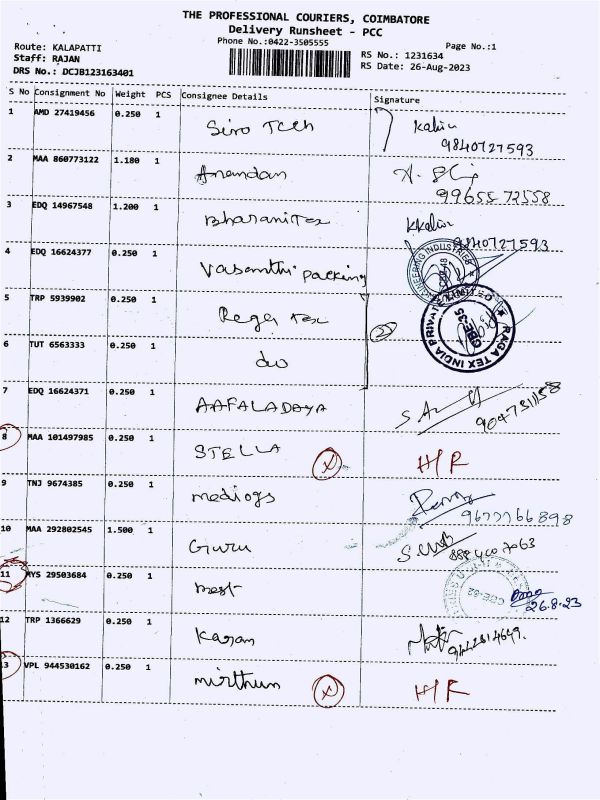 THE PROFESSIONAL COURIERS, COIMBATORE
Delivery Runsheet - PCC
Phone No.:0422-3505555
Page No.:1
Route: KALAPATTI
Staff: RAJAN
DRS No.: DCJB123163401
RS No.: 1231634
RS Date: 26-Aug-2023
S No Consignment No Weight PCS Consignee Details Signature
1 AMD 27419456 0.250 1 Siro Tech
9840727593
2 MAA 860773122 1.180 1 Anandan
99655 72558
3 EDQ 14967548 1.200 1 Bharani Tex
9840727593
4 EDQ 16624377 0.250 1 Vasanthi packing
ENGINEERING INDUSTRIES
5 TRP 5939902 0.250 1 Raga Tex
RAGA TEX INDIA PRIVATE LIMITED
CBE-35
2
6 TUT 6563333 0.250 1 do
7 EDQ 16624371 0.250 1 AAFALADAYA
8 MAA 101497985 0.250 1 STELLA X H/F
9 TNJ 9674385 0.250 1 mediogs
9677766898
10 MAA 292802545 1.500 1 Guru
11 MYS 29503684 0.250 1 best
26.8.23
12 TRP 1366629 0.250 1 Karan
13 VPL 944530162 0.250 1 mirthun X H/F